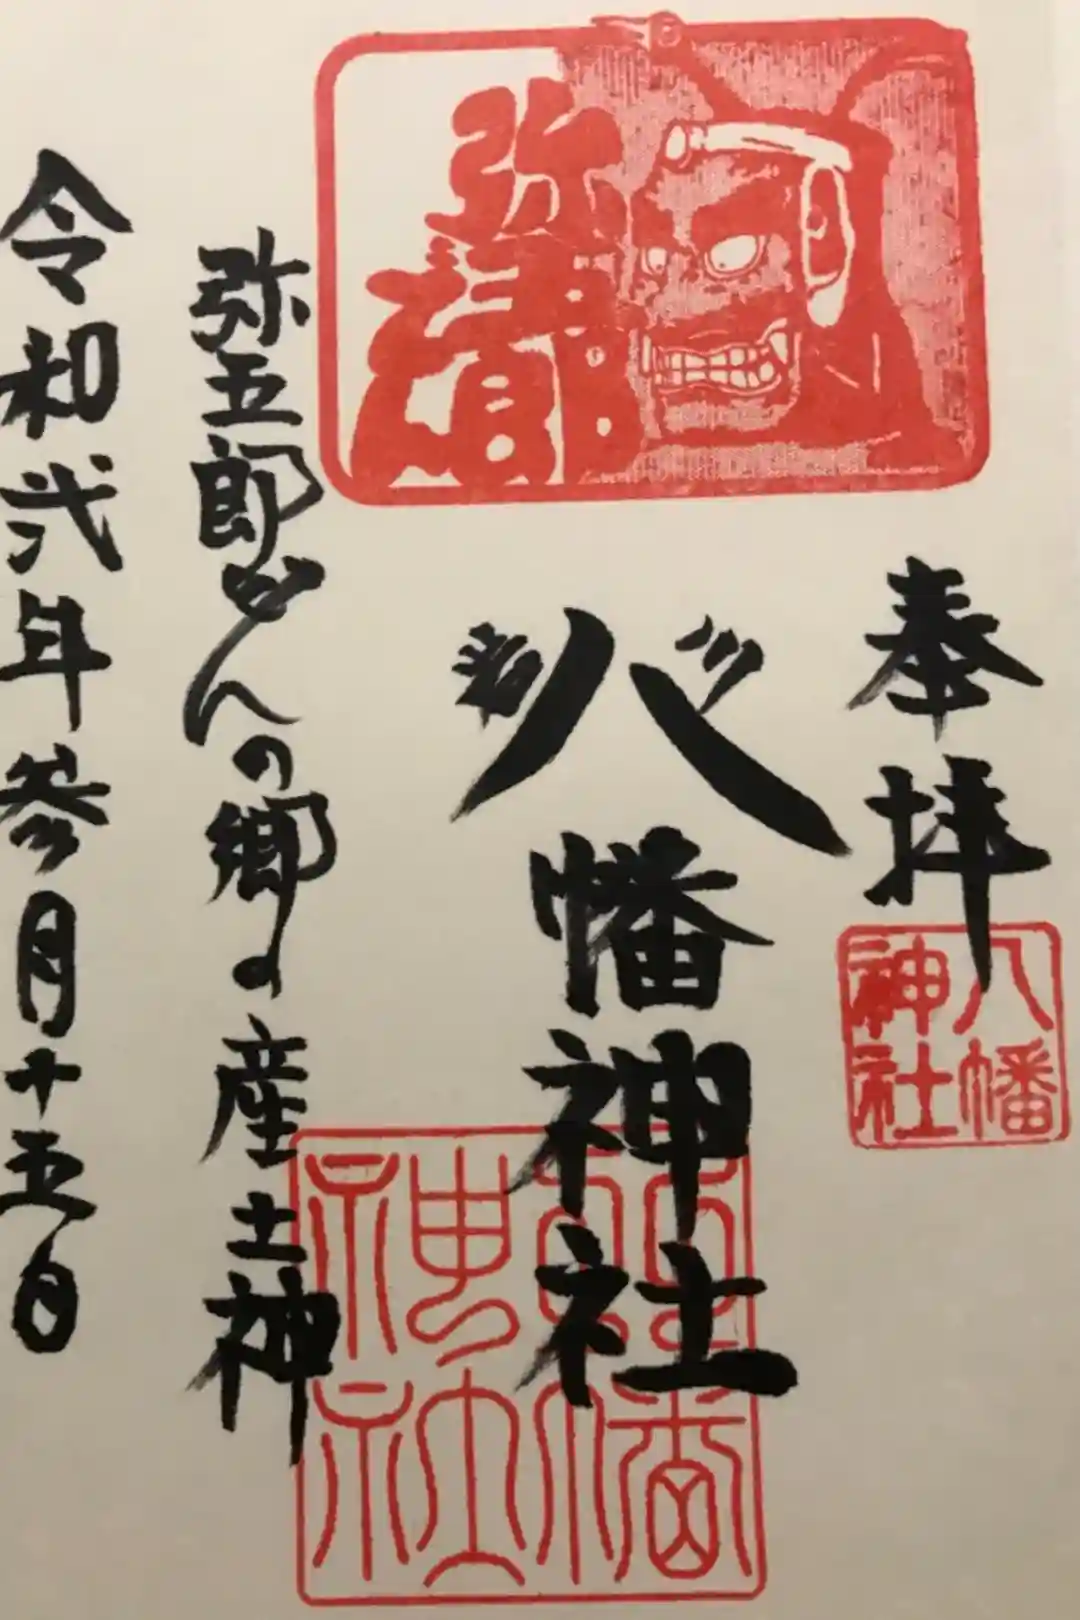 奉拝
八幡神社
八幡神社
弥五郎どんの郷の産土神
令和弐年参月十五日
八幡神社